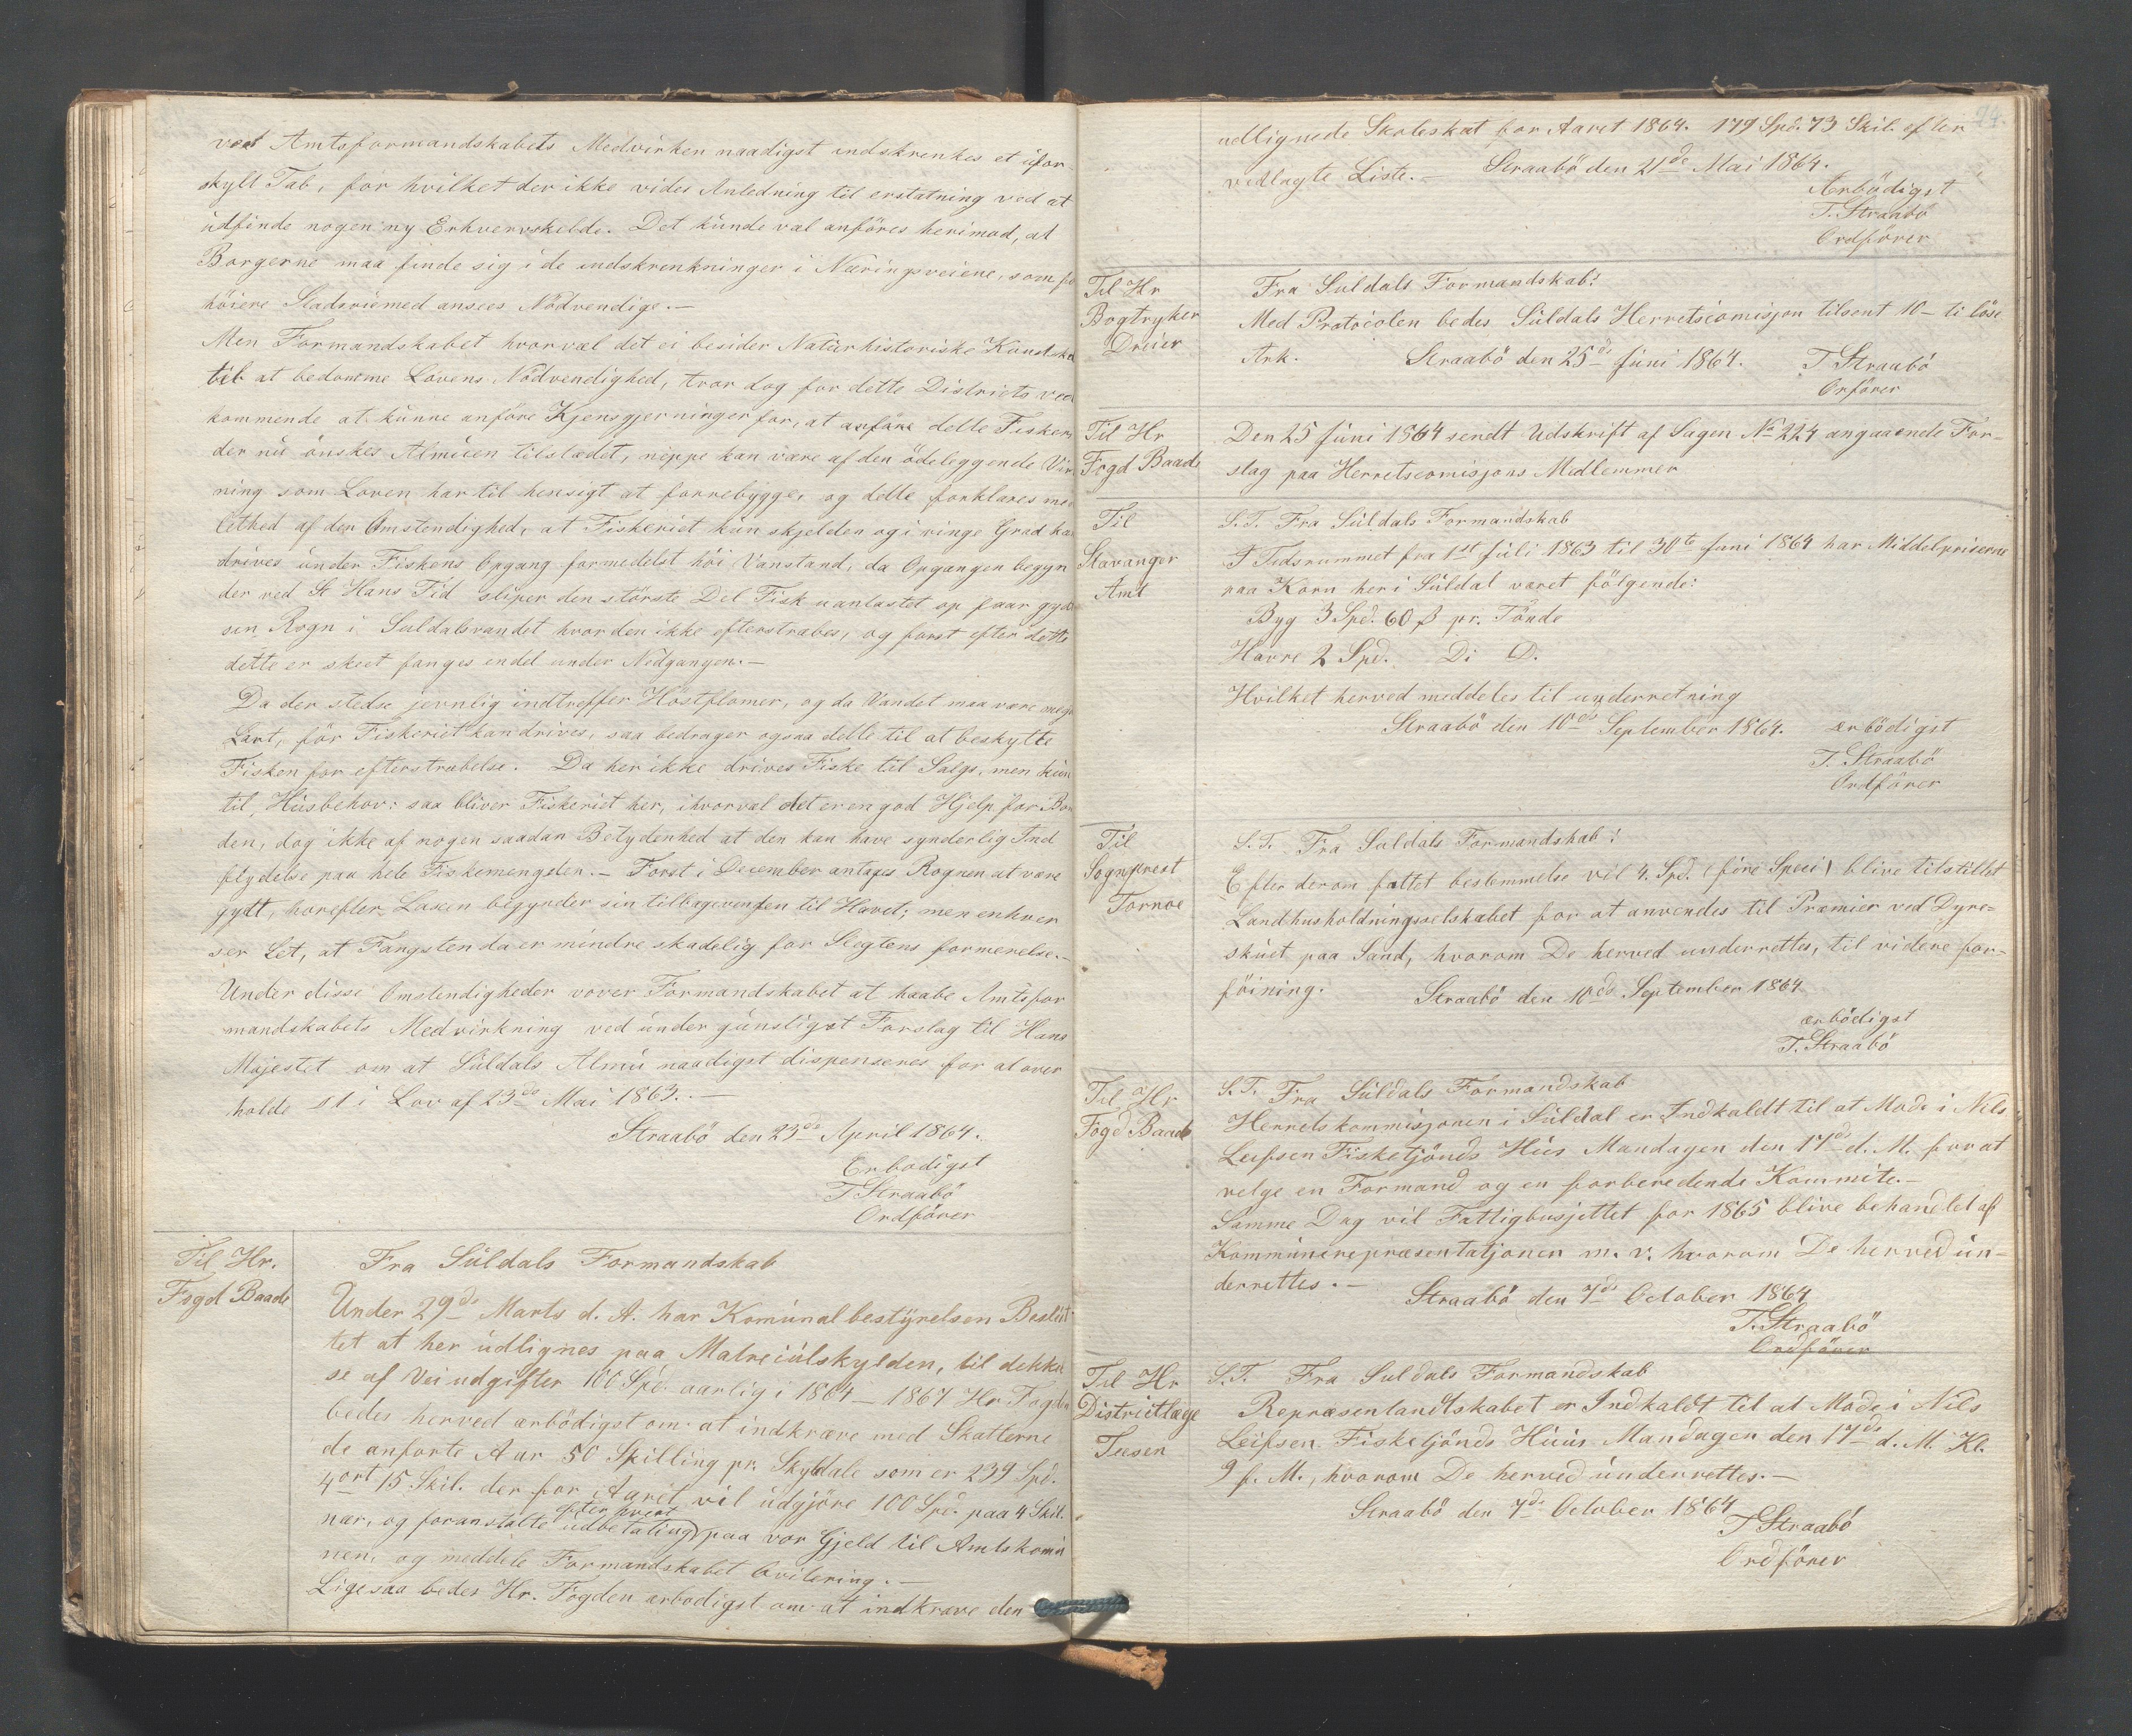 ved Amtsformandskabets Medvirken naadigst indskrenkes et ufor-
skylt Tab, for hvilket der ikke vides Anledning til erstatning ved at
udfinde nogen ny Erhvervskilde. Det kunde val anföres herimod, at
Borgerne maa finde sig i de indskrenkninger i Næringsveiene, som fra
höiere Stadsöiemed ansees Nödvendige.—
Men Formandskabet hvorval det ei besider Naturhistoriske Kundska
til at bedomme Lovens Nödvendighed, tror dog for dette Districts ved
kommende at kunne anföre Kjensgjerninger for, at anföre dette Fiskeri,
der nu önskes Almuen tilstædet, neppe kan være af den ödeleggende Virk
ning som Loven har til hensigt at forrebygge, og dette forklares med
lethed af den Omstendighed, at Fiskeriet kun skjelden og i ringe Grad kan
drives under Fiskens Opgang formedelst höi Vanstand, da Opgangen begyn
der ved St Hans Tid sliper den störste Del Fisk uantastet op faar gyde
sin Rogn i Suldalsvandet hvor den ikke efterstræbes, og forst efter dette
dette er skeet fanges endel under Nedgangen.—
Da der stedse jevnlig indtreffer Höstflomer, og da Vandet maa være meget
Lavt, för Fiskeriet kan drives, saa bedrager ogsaa dette til at beskytte
Fisken for efterstrabelse. Da her ikke drives Fiske til Salgs, men kun
til Husbehov: saa bliver Fiskeriet her, ihvorval det er en god Hjelp for Bon
den, dog ikke af nogen saadan Betydenhed at den kan have synderlig Ind
flydelse paa hele Fiskemengden.— Forst i December antages Rognen at være
gydt, hvorefter Laxen begynder sin tilbagevenden til Havet; men enhver
ser Let, at Fangsten da er mindre skadelig for Slegtens formerelse.—
Under disse Omstendigheder vover Formandskabet at haabe Amtsfor
mandskabets Medvirkning ved under gunstigst Forslag til Hans
Majestet om at Suldals Almu naadigst dispenseres for at over
holde § 1 i Lov af 23de Mai 1863.—
Straabö den 23de April 1864.
Erbodigst
T Straabö
Ordförer
Til Hr.
Fogd Baade
Fra Suldals Formandskab
Under 29de Marts d. A. har Komunalbestyrelsen Beslut
tet at her udlignes paa Matreculskylden, til dekkel
se af Veiudgifter 100 Spd. aarlig i 1864 — 1867 Hr Fogden
bedes herved ærbödigst om at indkræve med Skatterne
de anforte Aar 50 Skilling pr. Skyldale som er 239 Spd.
4 ort 15 Skil. der for Aaret vil udgjöre 100 Spd. paa 4 Skil.
nær, og foranstalte udbetaling efter hvert paa vor Gjeld til Amtskomu
nen, og meddele Formandskabet Qvitering.—
Ligesaa bedes Hr. Fogden ærbodigst om at indkræve den
94.
udlignede Skoleskat for Aaret 1864. 179 Spd. 73 Skil. efter
vedlagte Liste.— Straabö den 21de Mai 1864.
Ærbödigst
T. Straabö
Ordförer
Til Hr
Bogtryker
Dreier
Fra Suldals Formandskab!
Med Protocolen bedes Suldals Herretscomisjon tilsent 10 — ti löse
Ark. Straabö den 25de Juni 1864. T Straabö
Orförer
Til Hr
Fogd Baade
Den 25 Juni 1864 sendt Udskrift af Sagen No 224 angaaende For-
slag paa Herretscomisjons Medlemmer
Til
Stavanger
Amt
S. T. Fra Suldals Formandskab
I Tidsrummet fra 1st Juli 1863 til 30te Juni 1864 har Middelpriserne
paa Korn her i Suldal været fölgende:
Byg 3 Spd. 60 ß pr. Tönde
Havre 2 Spd. Di D.
Hvilket herved meddeles til underretning
Straabö den 10de September 1864. ærbödigst
T. Straabö
Ordförer
Til
Sognprest
Tornoe
S. T. Fra Suldals Formandskab!
Efter derom fattet bestemmelse vil 4. Spd. (fire Speci) blive tilstillet
Landhusholdningsselskabet for at anvendes til Præmier ved Dyre-
skuet paa Sand, hvorom De herved underrettes, til videre for-
föining. Straabö den 10de September 1864
ærbödigst
T. Straabö
Til Hr
Fogd Baade
S. T. Fra Suldals Formandskab
Herretskommisjonen i Suldal er Indkaldt til at Mode i Nils
Leifsen Fisketjönds Hus Mandagen den 17de d. M. for at
velge en Formand og en forberedende Kommite.—
Samme Dag vil Fattigbusjettet for 1865 blive behandlet af
Kommunerepræsentatjonen m. v. hvorom De herved un-
derrettes.— Straabö den 7de October 1864
T. Straabö
Ordförer
Til Hr
Districtlæge
Teesen
S. T. Fra Suldals Formandskab
Repræsentandtskabet er Indkaldt til at Mode i Nils
Leifsen Fisketjönds Huus Mandagen den 17de d. M. Kl.
9 f. M., hvorom De herved underrettes.—
Straabö den 7de October 1864
T Straabö
Ordförer